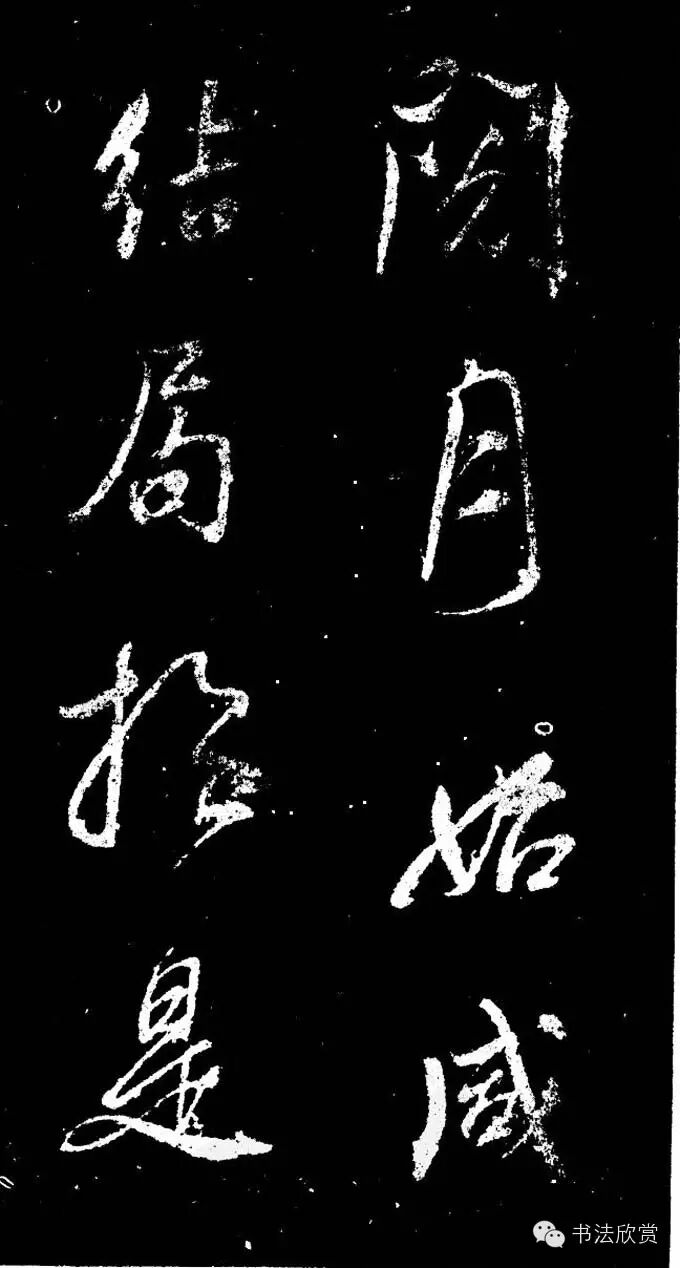 閱月始咸
結局於是
书法欣赏